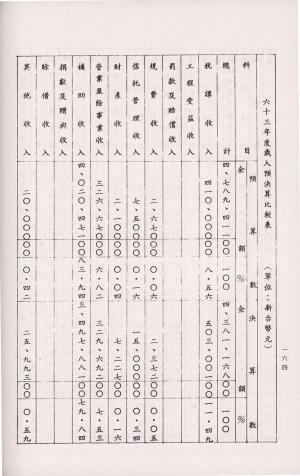 一六四
六十三年度歲入預決算比較表 （單位：新台幣元）
科目 預算數 金額 % 決算數 金額 %
總計 四、七八九、四一一、〇〇〇 一〇〇 四、三八一、一六八、〇〇〇 一〇〇
稅課收入 四一〇、〇〇〇、〇〇〇 八·五六 一一·四九
工程受益收入
罰款及賠償收入
規費收入 二、六七〇、〇〇〇 〇·〇六 二、三七二、〇〇〇 〇·〇五
信託管理收入 七、五〇〇、〇〇〇 〇·一六 一五、〇〇〇、〇〇〇 〇·三四
財產收入 二、〇〇〇、〇〇〇 〇·〇四 七、二二七、〇〇〇 〇·一六
營業盈餘事業收入 三二六、七七〇、〇〇〇 六·八二
補助收入 四、〇二〇、四七一、〇〇〇 八三·九四 三、四九七、八八一、〇〇〇 七九·八四
捐獻及贈與收入
賒借收入
其他收入 二〇、〇〇〇、〇〇〇 〇·四二 二五、九九三、〇〇〇 〇·五九